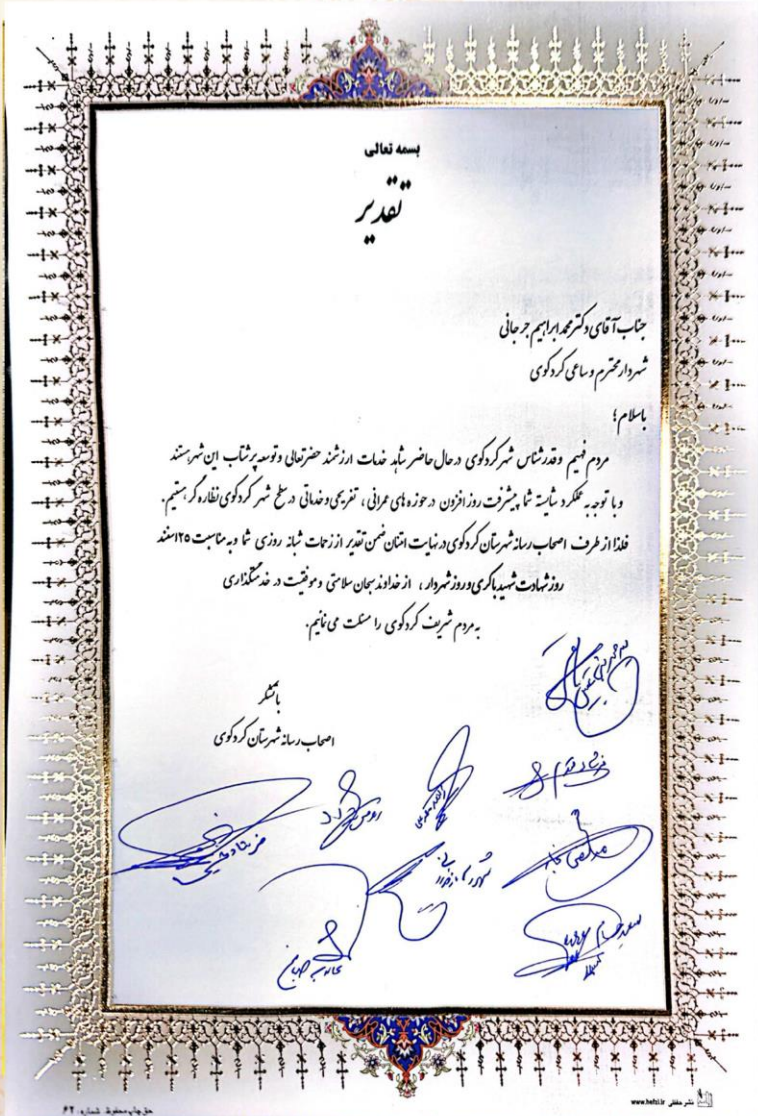 بسمه تعالی
تقدیر
جناب آقای دکتر محمد ابراهیم جرجانی
شهردار محترم و ساعی کردکوی
باسلام؛
مردم فهیم و قدرشناس شهر کردکوی در حال حاضر شاهد خدمات ارزشمند حضرتعالی و توسعه پرشتاب این شهر هستند
و با توجه به عملکرد شایسته شما پیشرفت روز افزون در حوزه های عمرانی ، تفریحی و خدماتی در سطح شهر کردکوی نظاره گر هستیم.
فلذا از طرف اصحاب رسانه شهرستان کردکوی در نهایت امتنان ضمن تقدیر از زحمات شبانه روزی شما و به مناسبت ۲۵ اسفند
روز شهادت شهید باکری و روز شهردار ، از خداوند سبحان سلامتی و موفقیت در خدمتگذاری
به مردم شریف کردکوی را مسئلت می نمائیم.
باتشکر
اصحاب رسانه شهرستان کردکوی
حق چاپ محفوظ شماره: ۶۲
نشر حفظی www.hefzi.ir